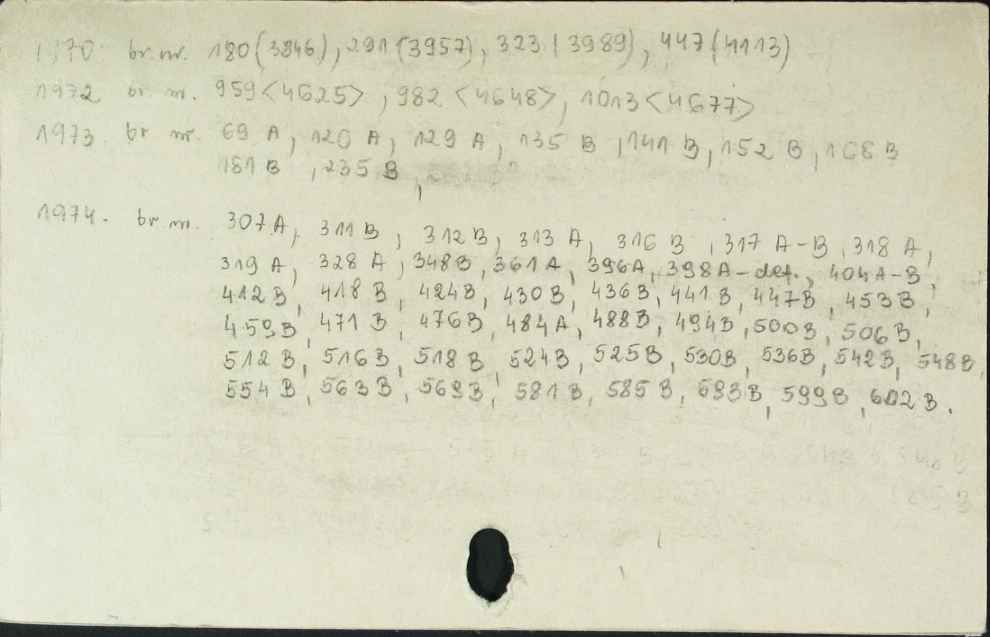 1970 br. nr. 180 (3846), 291 (3957), 323 (3989), 447 (4113)
1972 br. nr. 959 <4625>, 982 <4648>, 1013 <4677>
1973 br nr. 69 A, 120 A, 129 A, 135 B, 141 B, 152 B, 168 B
181 B, 235 B,
1974. br nr. 307 A, 311 B, 312 B, 313 A, 316 B, 317 A-B, 318 A,
319 A, 328 A, 348 B, 361 A, 396 A, 398 A-def., 404 A-B,
412 B, 418 B, 424 B, 430 B, 436 B, 441 B, 447 B, 453 B,
459 B, 471 B, 476 B, 484 A, 488 B, 494 B, 500 B, 506 B,
512 B, 516 B, 518 B, 524 B, 525 B, 530 B, 536 B, 542 B, 548 B,
554 B, 563 B, 569 B, 581 B, 585 B, 593 B, 599 B, 602 B.